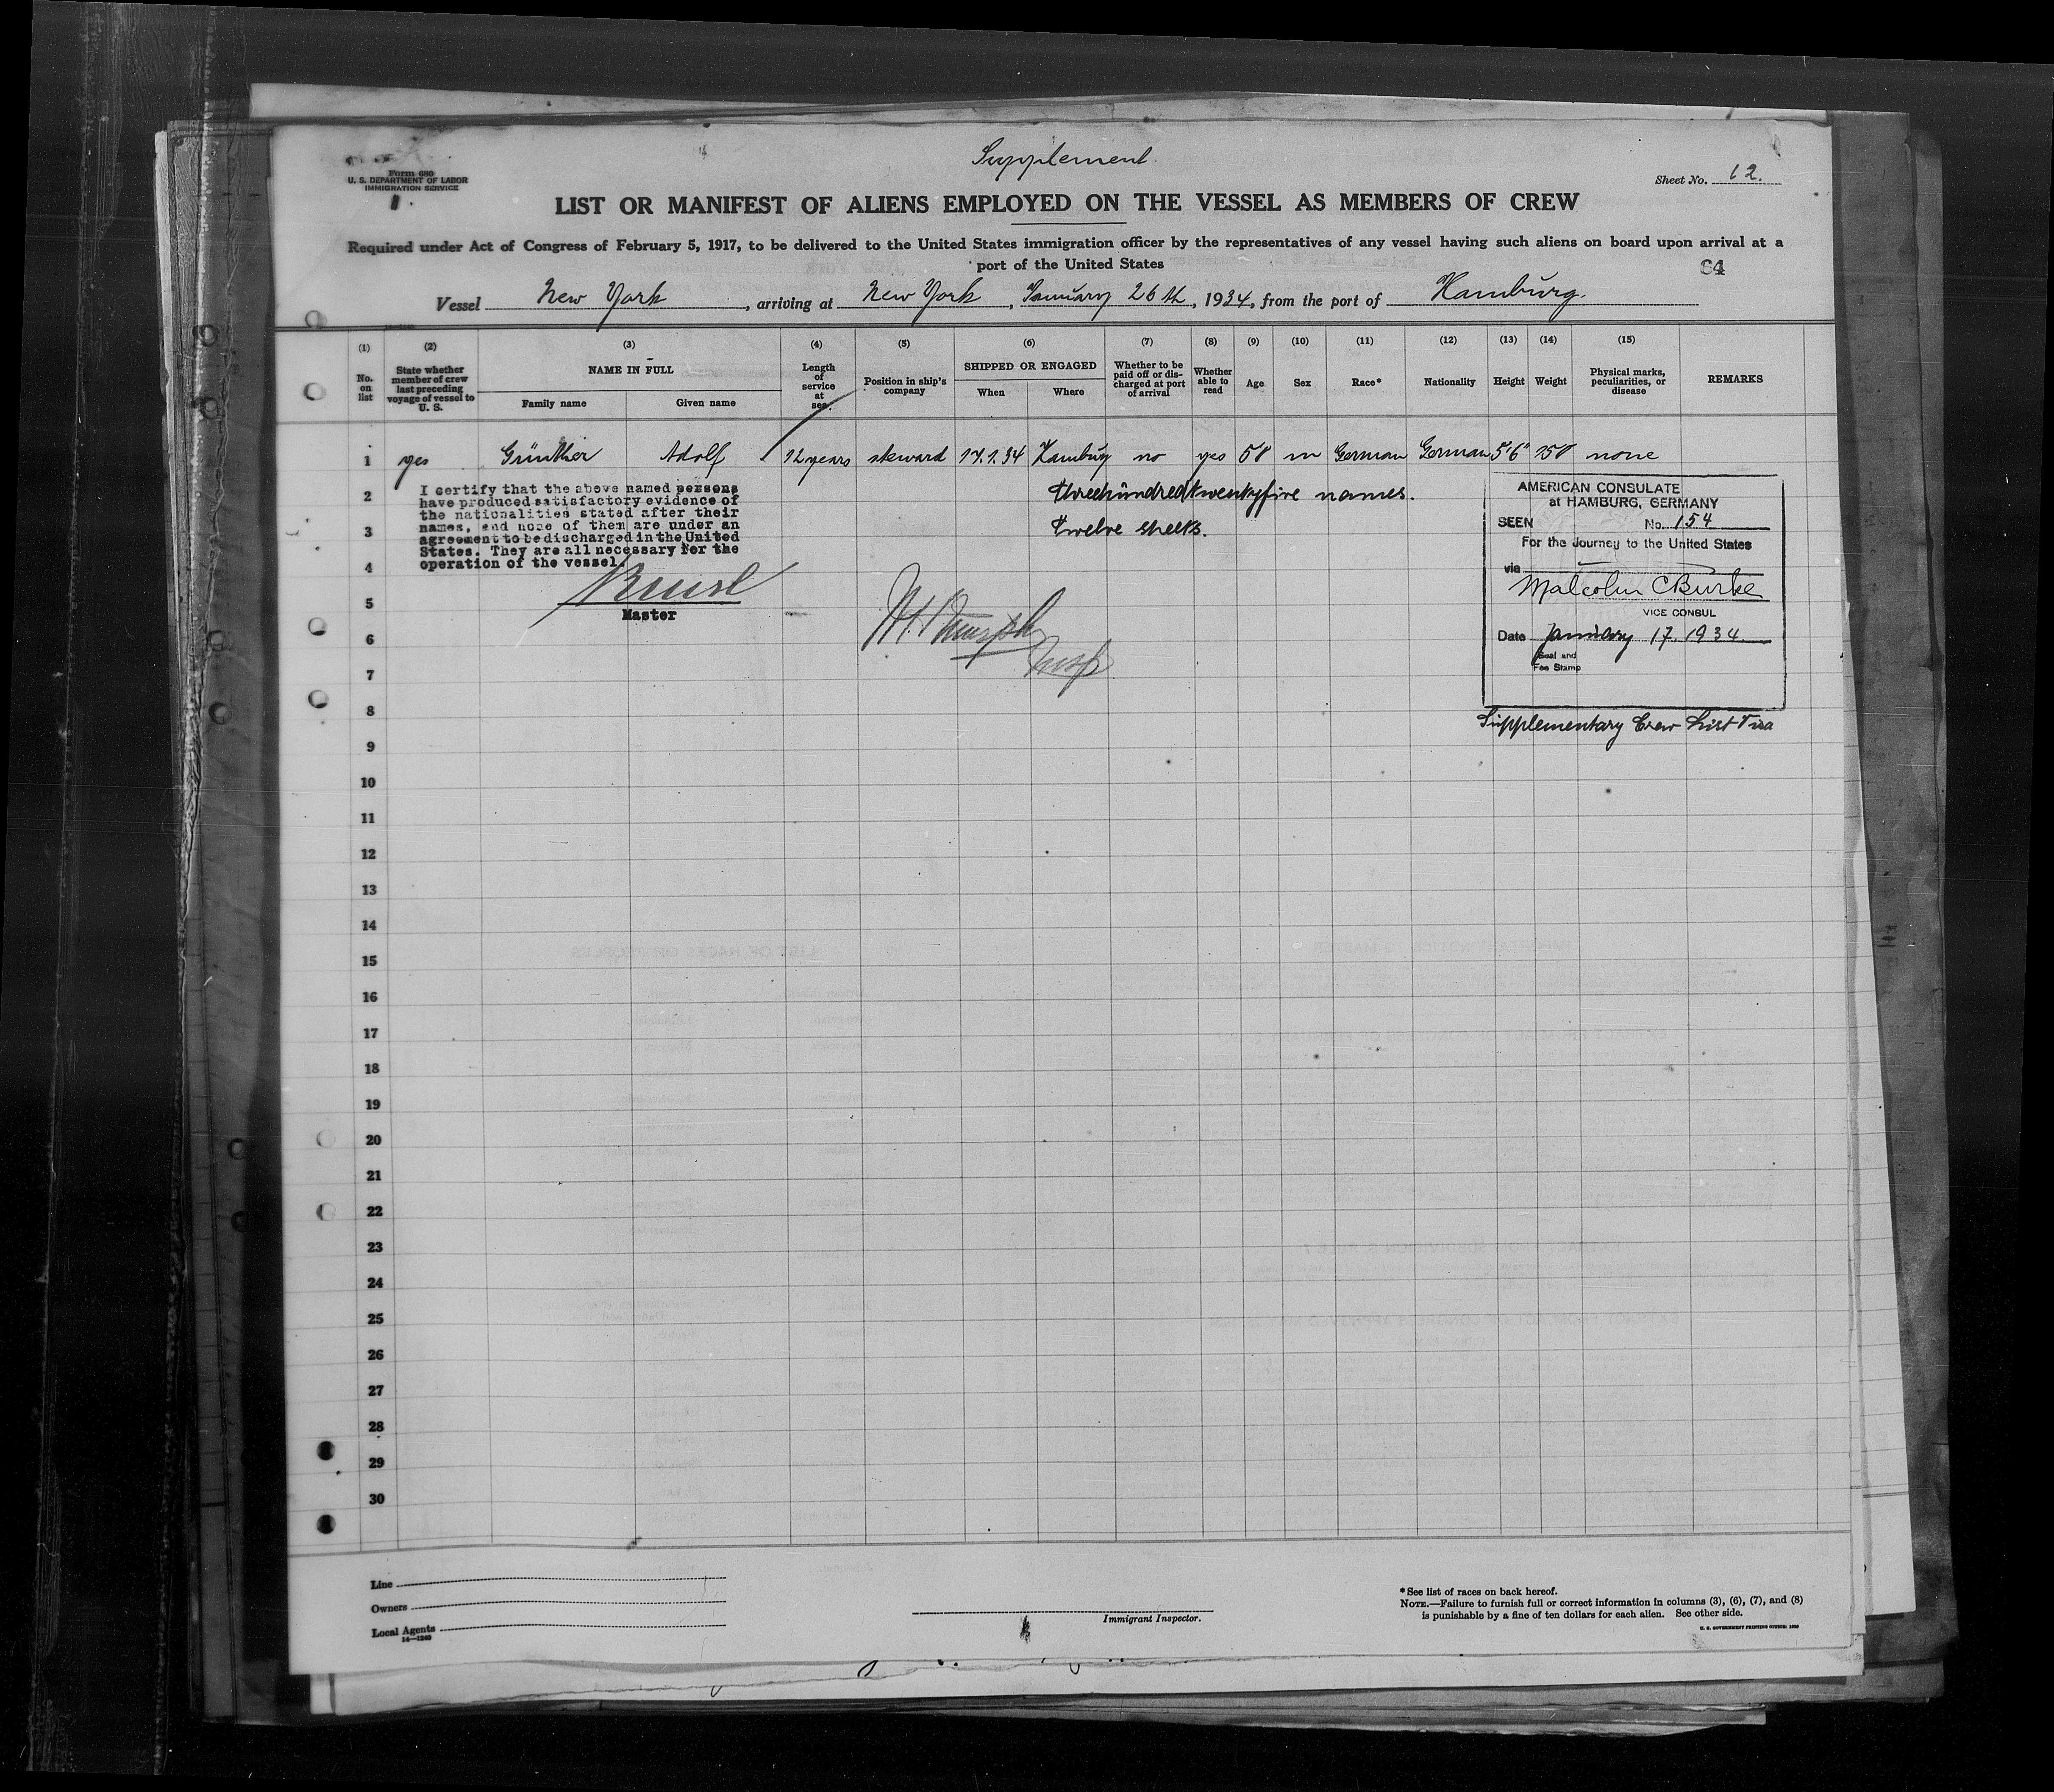 Supplement
Form 680
U. S. DEPARTMENT OF LABOR
IMMIGRATION SERVICE
Sheet No. 12.
LIST OR MANIFEST OF ALIENS EMPLOYED ON THE VESSEL AS MEMBERS OF CREW
Required under Act of Congress of February 5, 1917, to be delivered to the United States immigration officer by the representatives of any vessel having such aliens on board upon arrival at a
port of the United States
64
Vessel New York, arriving at New York, January 26th, 1934, from the port of Hamburg.
(1) (2) (3) (4) (5) (6) (7) (8) (9) (10) (11) (12) (13) (14) (15)
No. on list
State whether member of crew last preceding voyage of vessel to U. S.
NAME IN FULL
Family name
Given name
Length of service at sea.
Position in ship's company
SHIPPED OR ENGAGED
When
Where
Whether to be paid off or discharged at port of arrival
Whether able to read
Age
Sex
Race*
Nationality
Height
Weight
Physical marks, peculiarities, or disease
REMARKS
1 yes Günther Adolf 12 years steward 17.1.34 Hamburg no yes m German German 5'6" none
2
3
4
5
6
7
8
9
10
11
12
13
14
15
16
17
18
19
20
21
22
23
24
25
26
27
28
29
30
I certify that the above named persons
have produced satisfactory evidence of
the nationalities stated after their
names, and none of them are under an
agreement to be discharged in the United
States. They are all necessary for the
operation of the vessel.
Master
threehundredtwentyfive names.
twelve sheets.
Insp
AMERICAN CONSULATE
at HAMBURG, GERMANY
SEEN No. 154
For the Journey to the United States
via
Malcolm C Burke
VICE CONSUL
Date January 17. 1934
Seal and
Fee Stamp
Supplementary Crew List Visa
Line
Owners
Local Agents
14—1240
Immigrant Inspector.
*See list of races on back hereof.
NOTE.—Failure to furnish full or correct information in columns (3), (6), (7), and (8)
is punishable by a fine of ten dollars for each alien. See other side.